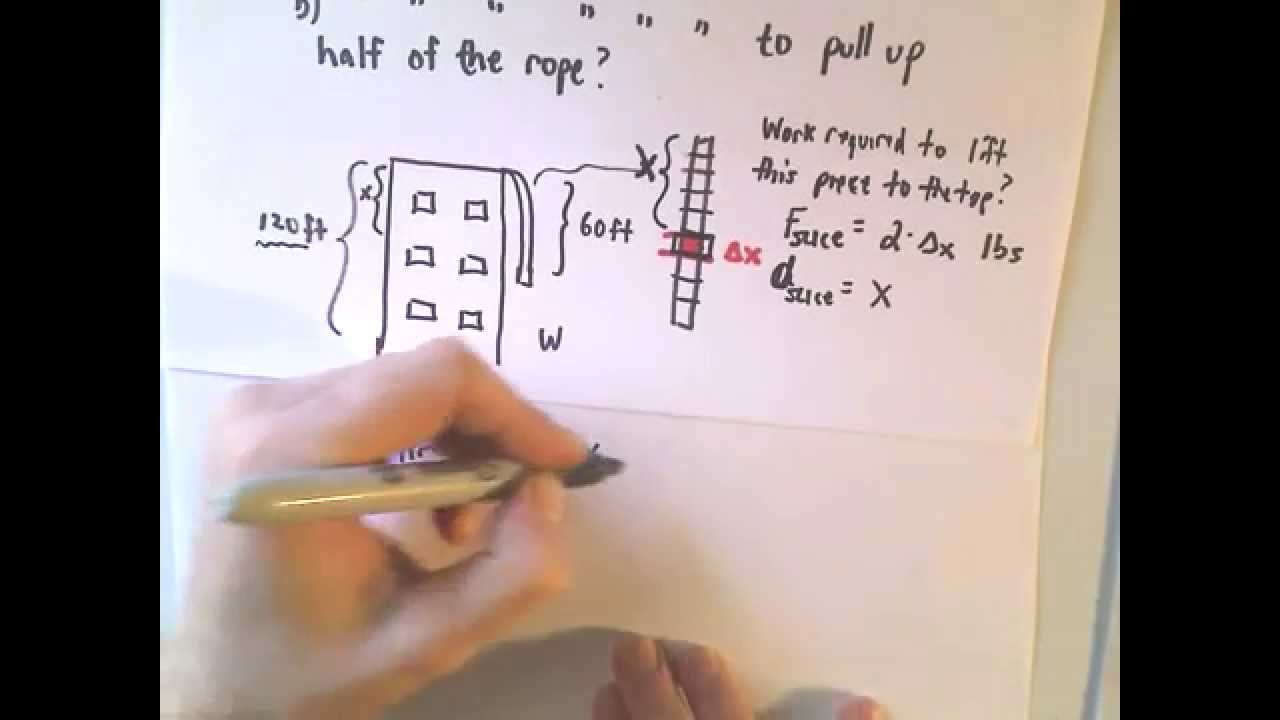 b) " " " " " to pull up
half of the rope?
120ft
x
60ft
X
Δx
Work required to lift
this piece to the top?
Fslice = 2·Δx lbs
dslice = X
W